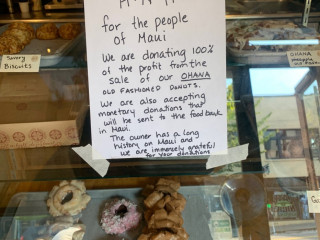 for the people
of Maui
We are donating 100%
of the profit from the
sale of our OHANA
OLD FASHIONED DONUTS.
We are also accepting
monetary donations that
will be sent to the food bank
in Maui.
The owner has a long
history on Maui and
we are immensely grateful
for your donations
Savory
Biscuits
OHANA